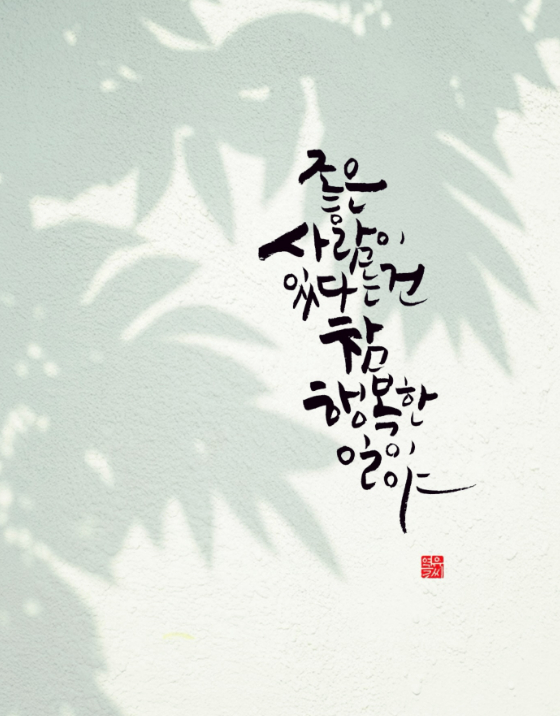 좋은
사람이
있다는건
참
행복한
일이야